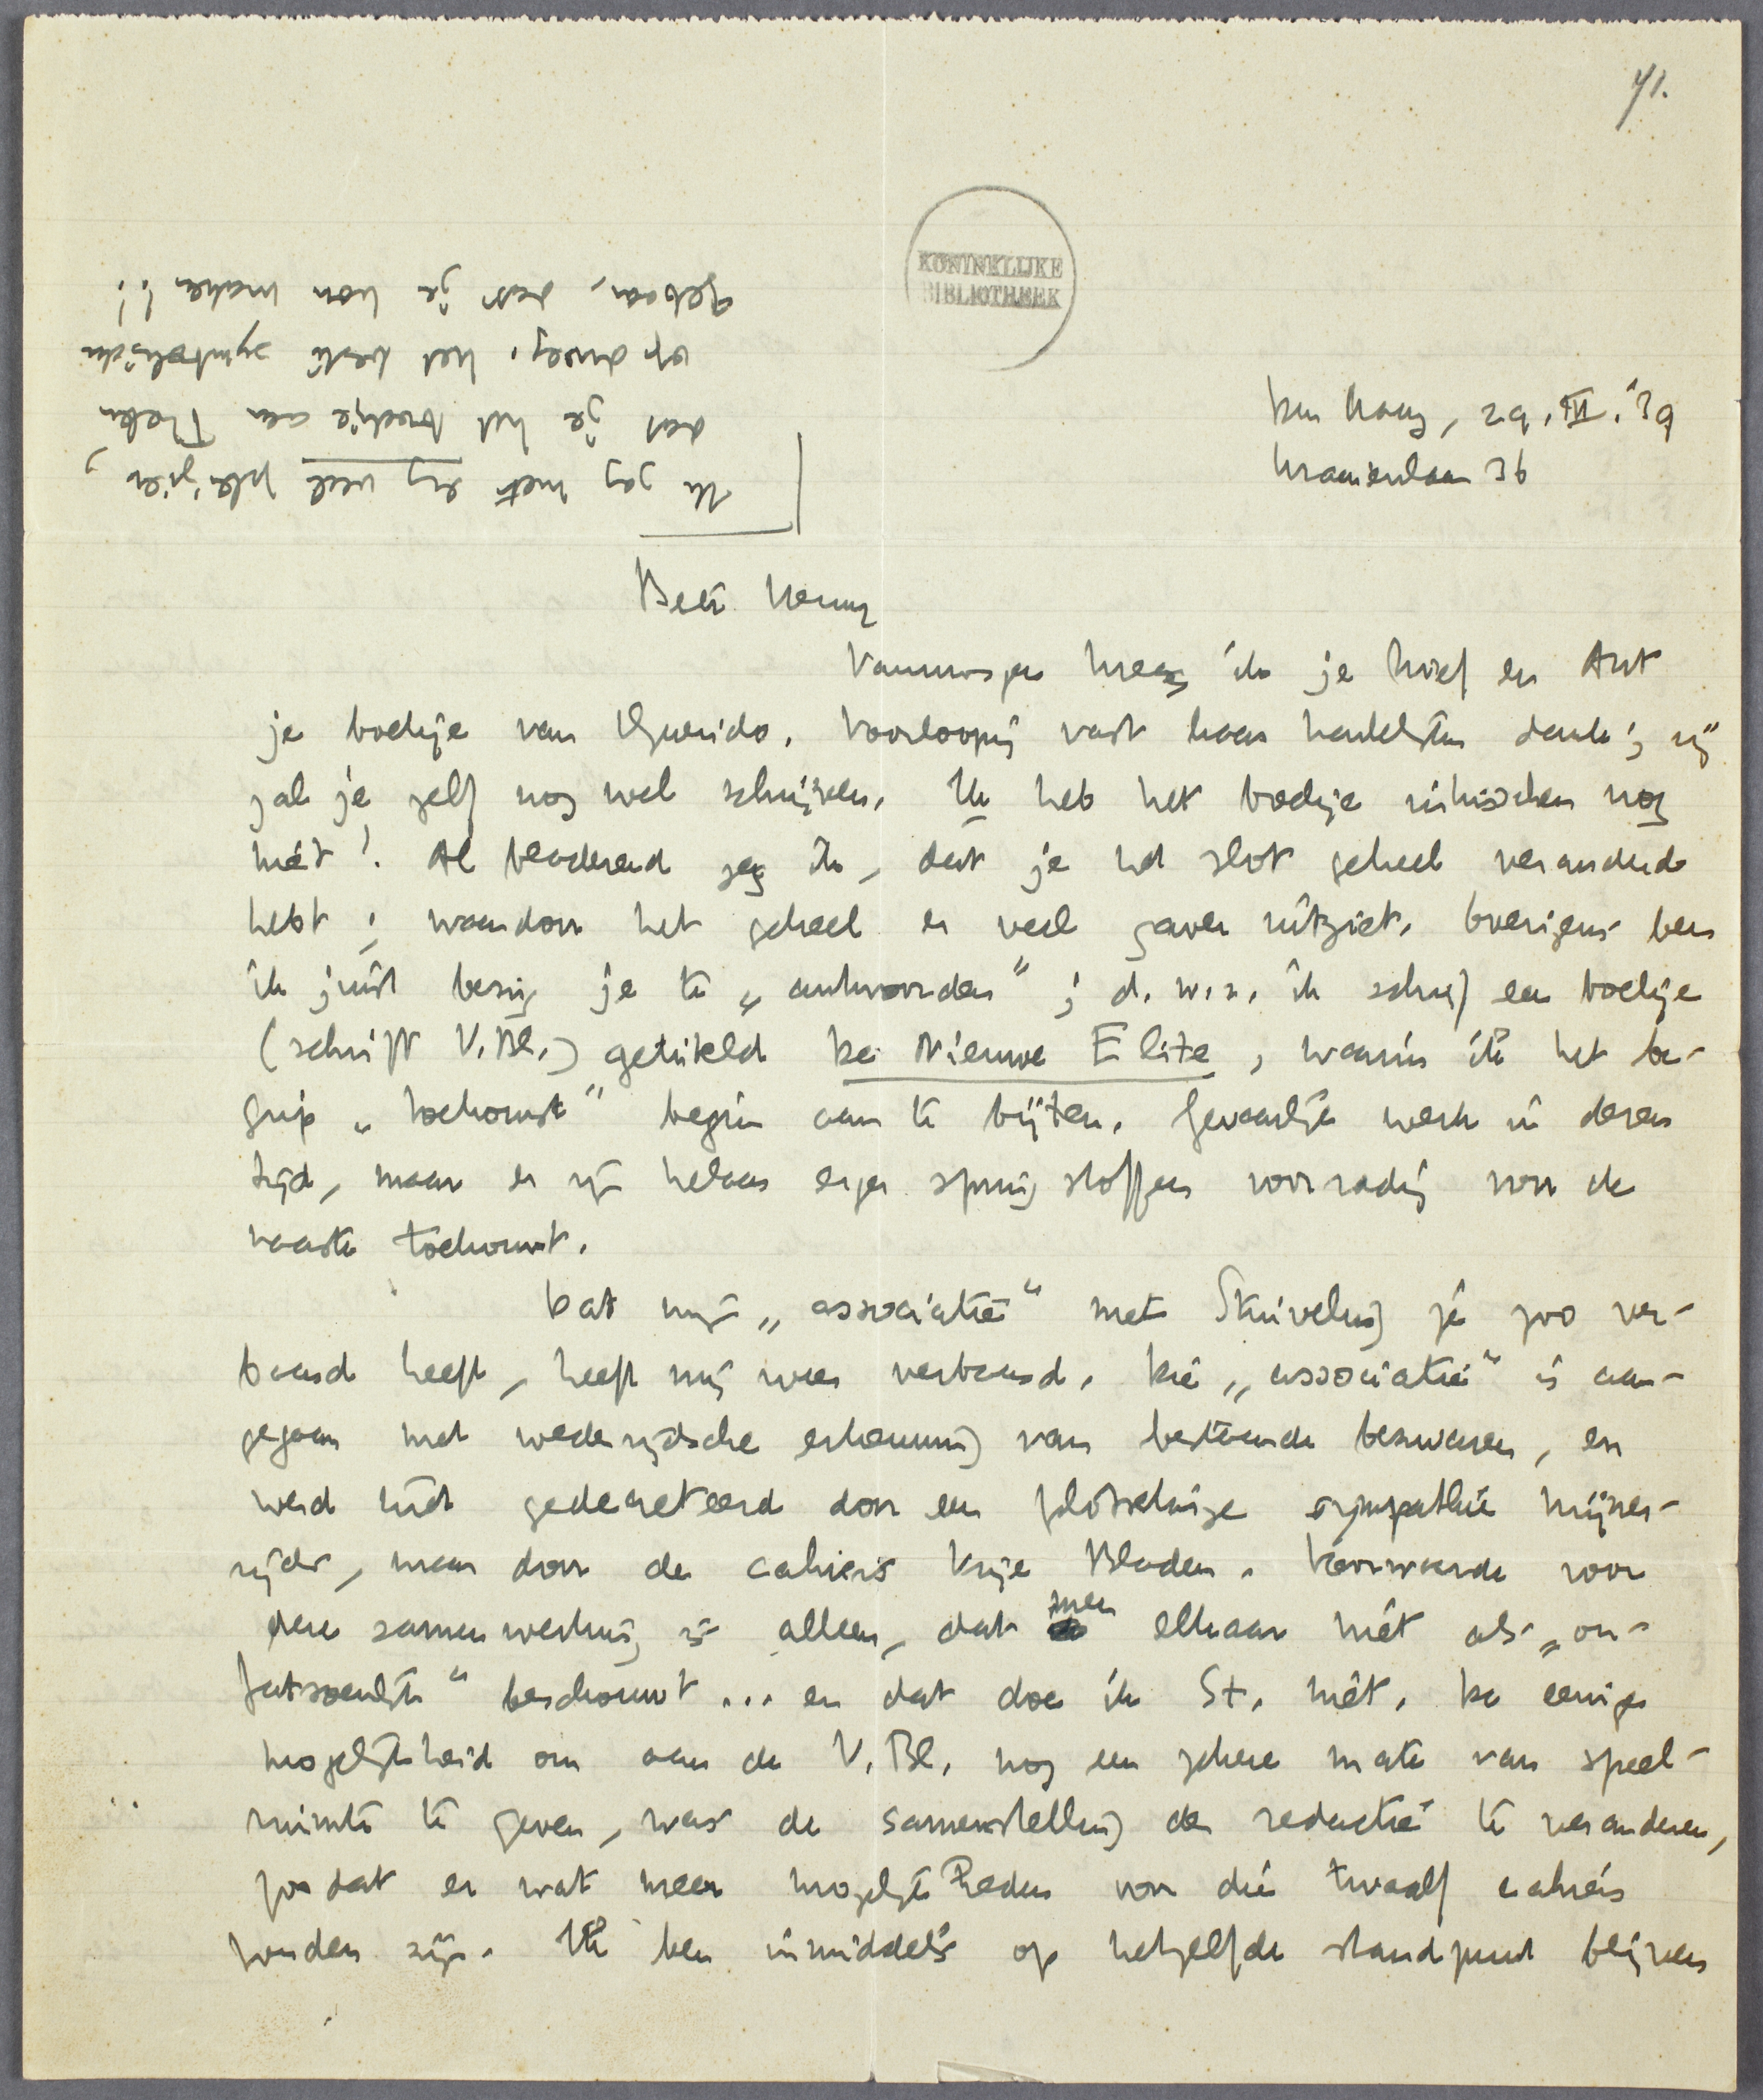 41.
KONINKLIJKE
BIBLIOTHEEK
Den Haag, 29.III.'39
Kraaienlaan 36
Beste Henny
Vanmorgen kreeg ik je brief en Ant
je boekje van Querido. Voorloopig vast haar hartelijken dank; zij
zal je zelf nog wel schrijven. Ik heb het boekje intusschen nog
niet! Al bladerend zag ik, dat je het slot geheel veranderd
hebt; waardoor het geheel er veel gaver uitziet. Overigens ben
ik juist bezig je te „antwoorden"; d.w.z. ik schrijf een boekje
(schrift V.Bl.) getiteld De Nieuwe Elite, waarin ik het be-
grip „toekomst" begin aan te bijten. Gevaarlijk werk in dezen
tijd, maar er zijn helaas erger springstoffen voorradig voor de
naaste toekomst.
Dat mijn „associatie" met Stuiveling je zoo ver-
baasd heeft, heeft mij weer verbaasd. Die „associatie" is aan-
gegaan met wederzijdsche erkenning van bestaande bezwaren, en
werd niet gedecreteerd door een plotselinge sympathie mijner-
zijds, maar door de cahiers Vrije Bladen. Voorwaarde voor
deze samenwerking is alleen, dat men elkaar niet als „on-
fatsoenlijk" beschouwt ... en dat doe ik St. niet. De eenige
mogelijkheid om aan de V.Bl. nog een zekere mate van speel-
ruimte te geven, was de samenstelling der redactie te veranderen,
zoodat er wat meer mogelijkheden voor die twaalf cahiers
zouden zijn. Ik ben inmiddels op hetzelfde standpunt blijven
Ik zag met erg veel plezier,
dat je het boekje aan Theun
opdroeg. Het beste symbolische
gebaar, dat je kon maken!!